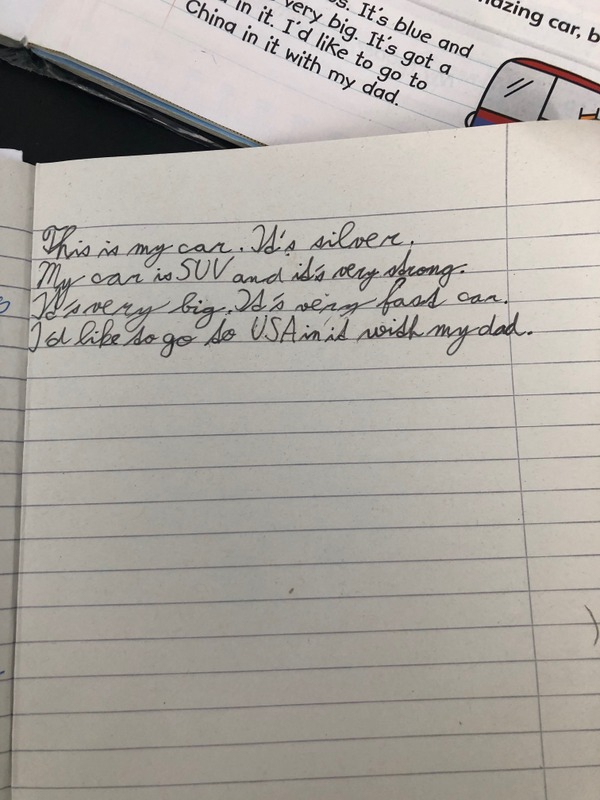 os. It's blue and
very big. It's got a
in it. I'd like to go to
China in it with my dad.
azing car, b
This is my car. It's silver.
My car is SUV and it's very strong.
It's very big. It's very fast car.
I'd like to go to USA in it with my dad.